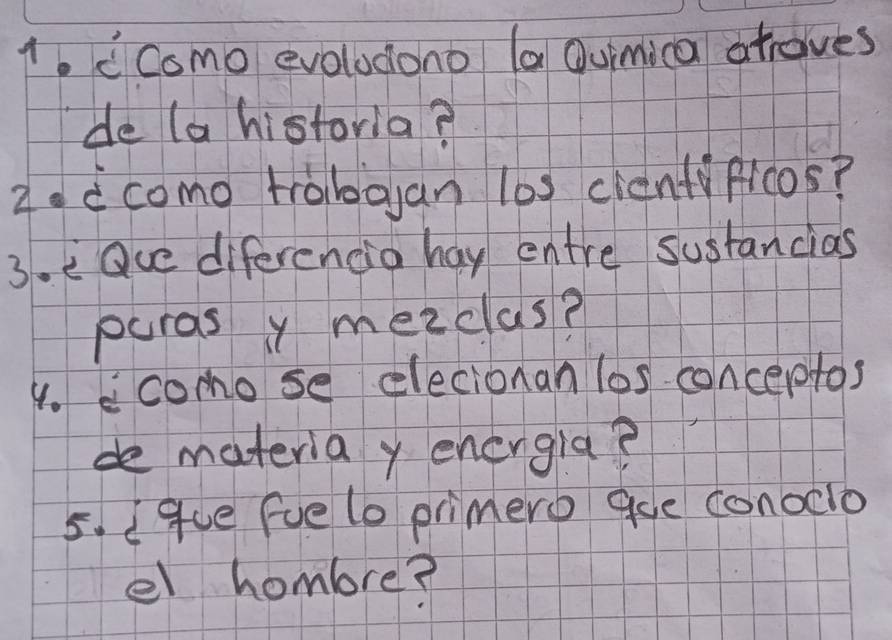 1. ¿Como evoluciono la Quimica atraves
de la historia?
2. ¿como trabajan los cientificos?
3. ¿Que diferencia hay entre sustancias
puras y mezclas?
4. ¿como se elecionan los conceptos
de materia y energia?
5. ¿que fue lo primero que conocio
el hombre?